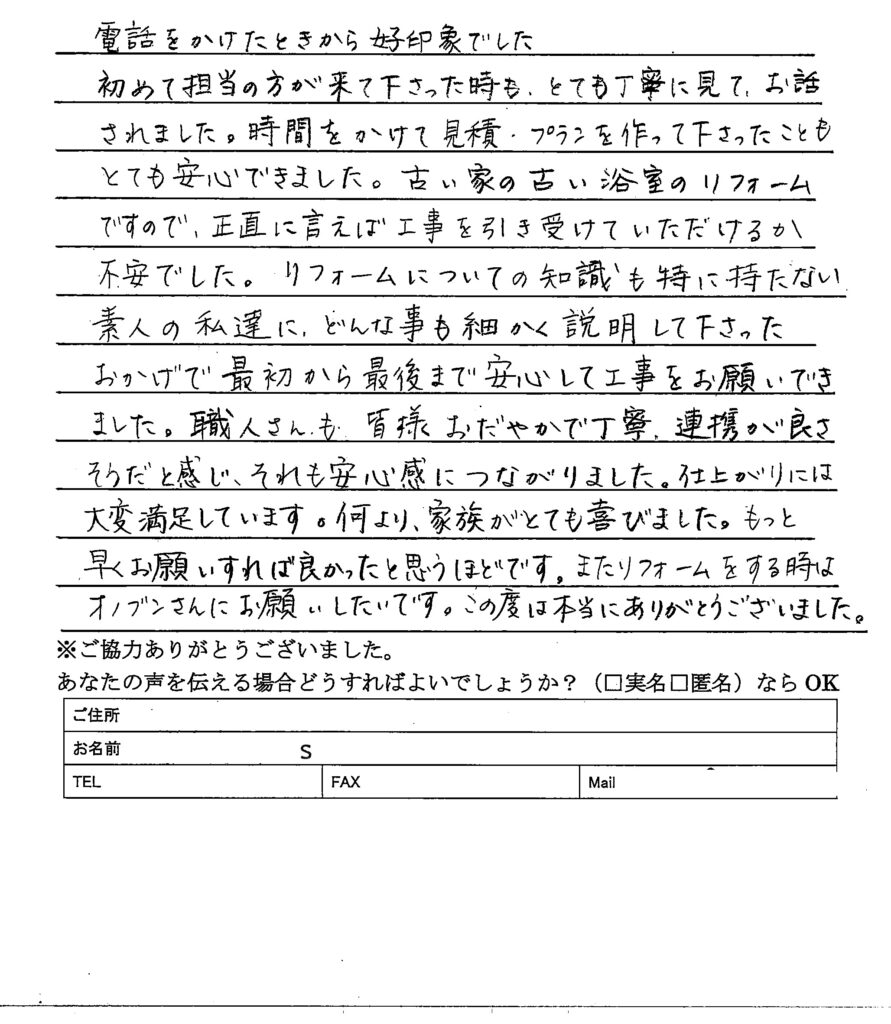 電話をかけたときから好印象でした
初めて担当の方が来て下さった時も、とても丁寧に見て、お話
されました。時間をかけて見積・プランを作って下さったことも
とても安心できました。古い家の古い浴室のリフォーム
ですので、正直に言えば工事を引き受けていただけるか
不安でした。リフォームについての知識も特に持たない
素人の私達に、どんな事も細かく説明して下さった
おかげで最初から最後まで安心して工事をお願いでき
ました。職人さんも皆様おだやかで丁寧、連携が良さ
そうだと感じ、それも安心感につながりました。仕上がりには
大変満足しています。何より、家族がとても喜びました。もっと
早くお願いすれば良かったと思うほどです。またリフォームをする時は
オノブンさんにお願いしたいです。この度は本当にありがとうございました。
※ご協力ありがとうございました。
あなたの声を伝える場合どうすればよいでしょうか？（□実名□匿名）なら OK
ご住所
お名前 S
TEL FAX Mail